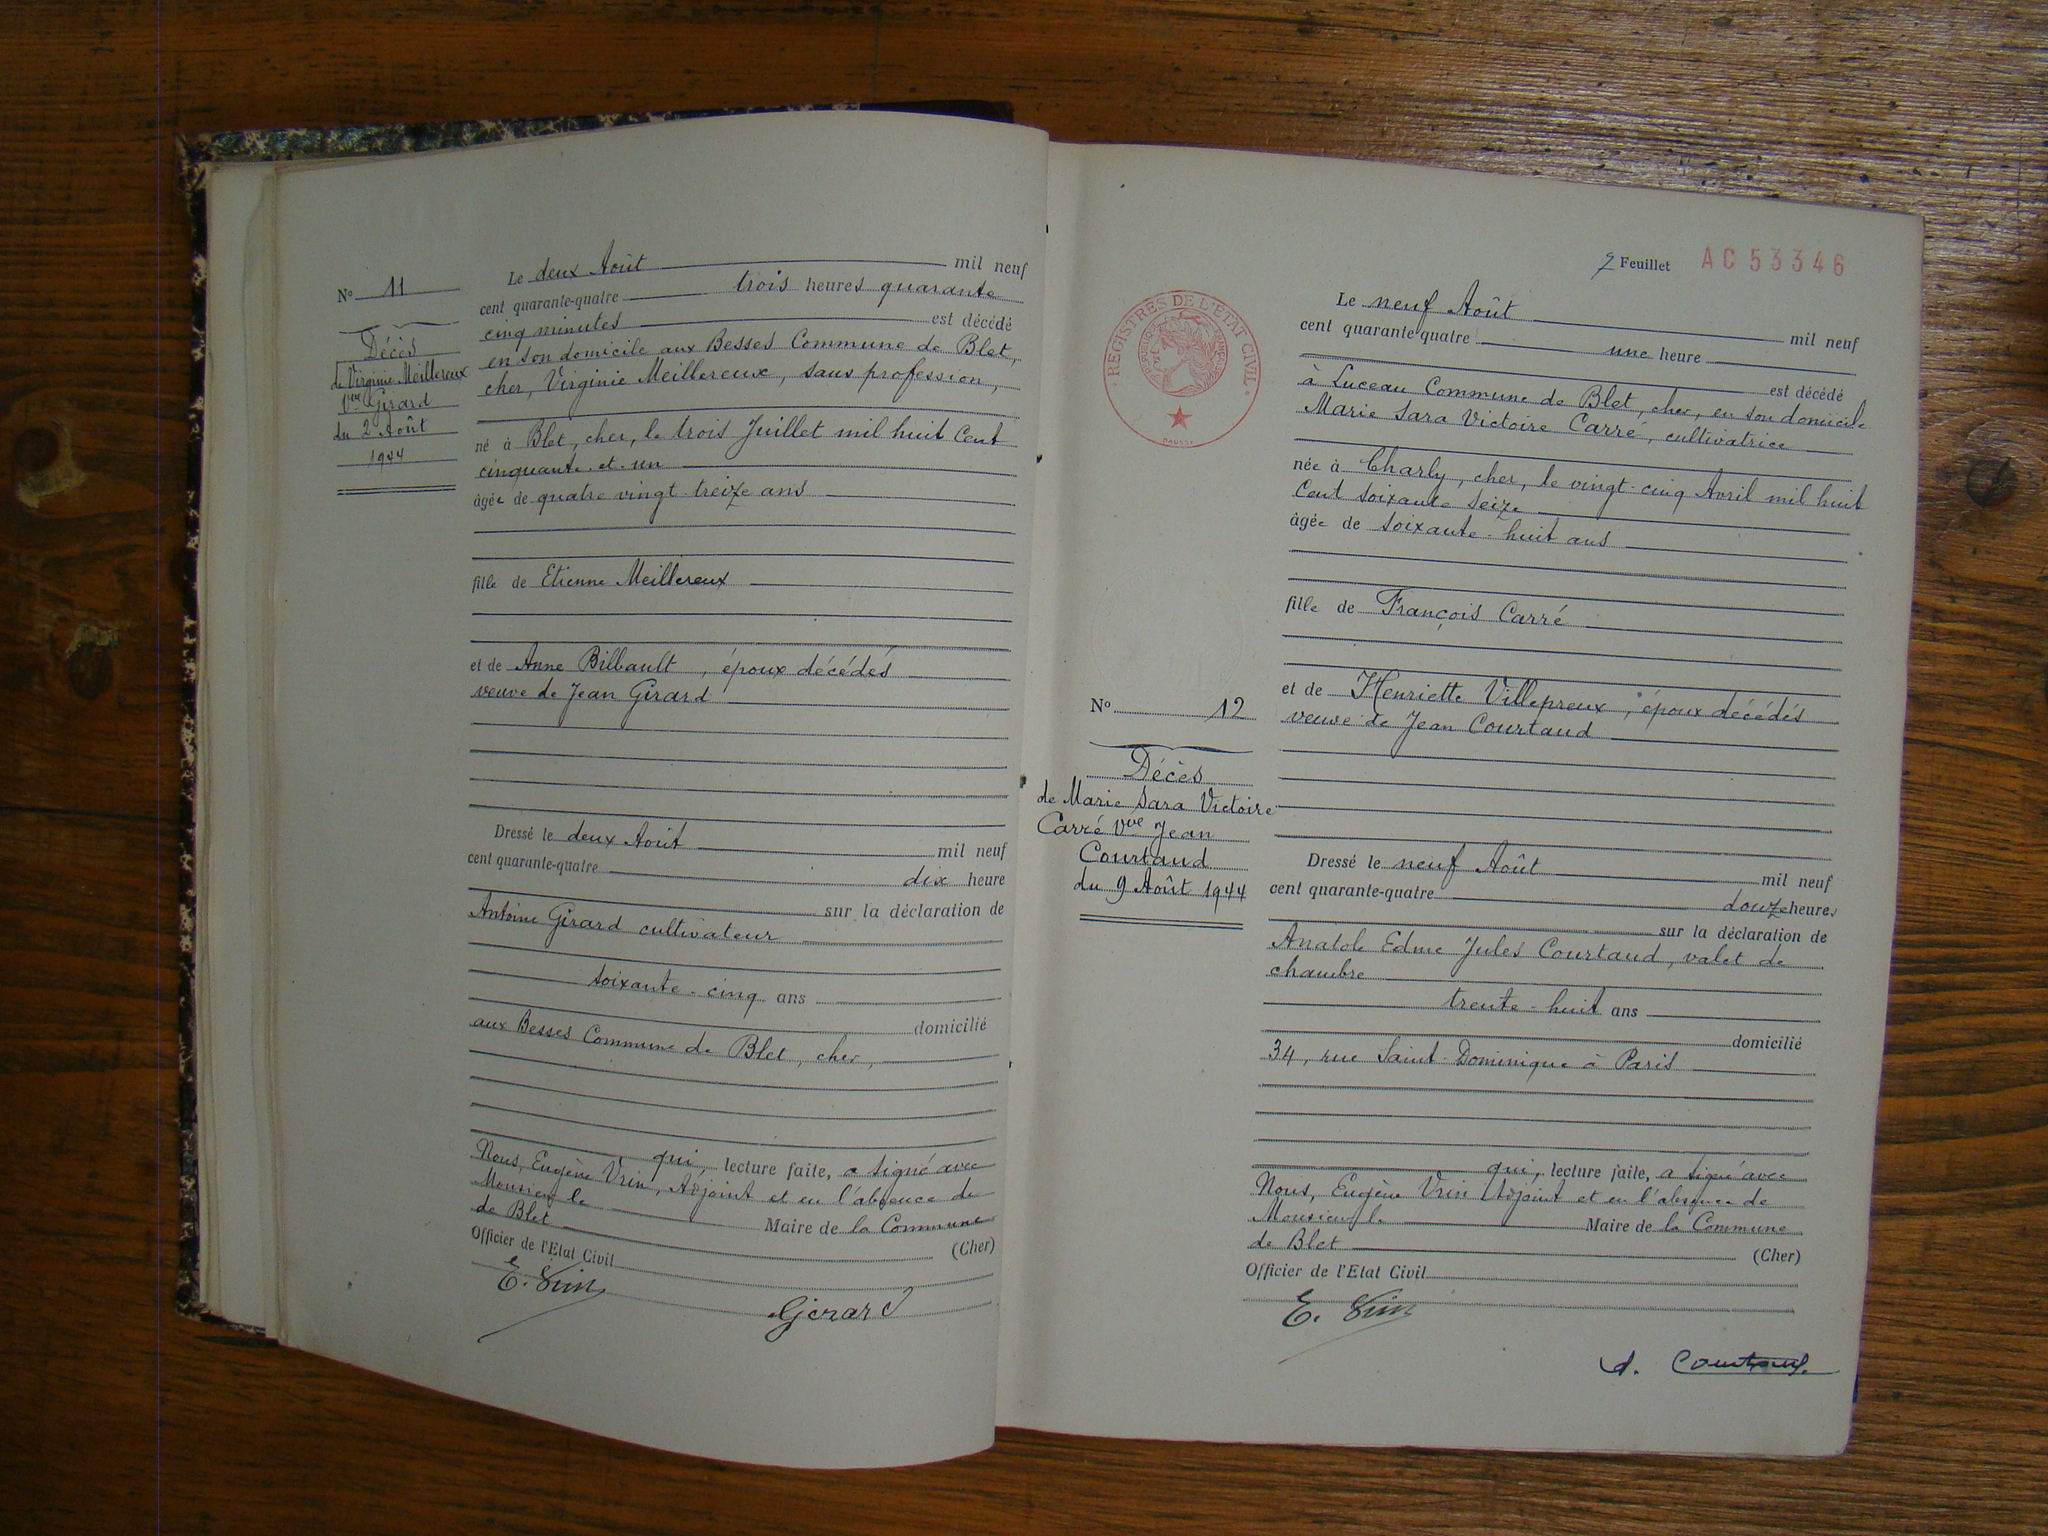 N° 11
Décès
de Virginie Meillereux
Vve Girard
du 2 Août
1944
Le deux Août mil neuf
cent quarante-quatre trois heures quarante
cinq minutes est décédé
en son domicile aux Besses Commune de Blet,
cher, Virginie Meillereux, sans profession,
né à Blet, cher, le trois Juillet mil huit Cent
cinquante et un
âgée de quatre vingt-treize ans
fille de Etienne Meillereux
et de Anne Bilbault, époux décédés
veuve de Jean Girard
Dressé le deux Août mil neuf
cent quarante-quatre dix heure
sur la déclaration de
Antoine Girard cultivateur
soixante-cinq ans
domicilié
aux Besses Commune de Blet, cher,
qui, lecture faite, a signé avec
Nous, Eugène Vrin, Adjoint et en l'absence de
Monsieur le Maire de la Commune
de Blet (Cher)
Officier de l'Etat Civil
E. Vrin
Girard
Feuillet AC 53346
REGISTRES DE L'ETAT CIVIL
N° 12
Décès
de Marie Sara Victoire
Carré Vve Jean
Courtaud
du 9 Août 1944
Le neuf Août mil neuf
cent quarante-quatre une heure
est décédé
à Luceau Commune de Blet, cher, en son domicile
Marie Sara Victoire Carré, cultivatrice
née à Charly, cher, le vingt-cinq Avril mil huit
Cent soixante seize
âgée de soixante-huit ans
fille de François Carré
et de Henriette Villepreux, époux décédés
veuve de Jean Courtaud
Dressé le neuf Août mil neuf
cent quarante-quatre douze heures
sur la déclaration de
Anatole Edme Jules Courtaud, valet de
chambre
trente-huit ans
domicilié
34, rue Saint-Dominique à Paris
qui, lecture faite, a signé avec
Nous, Eugène Vrin Adjoint et en l'absence de
Monsieur le Maire de la Commune
de Blet (Cher)
Officier de l'Etat Civil
E. Vrin
A. Courtaud